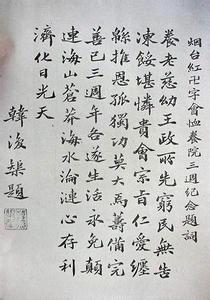 烟台红卍字會恤養院三週紀念題词
養老慈幼王政所先窮民無告
凍餒堪憐貴會宗旨仁愛纏
緜推恩孤獨功莫大焉籌備完
善已三週年各遂生活永免顛
連海山苍莽海水淪漣心存利
濟化日光天
韓復榘題